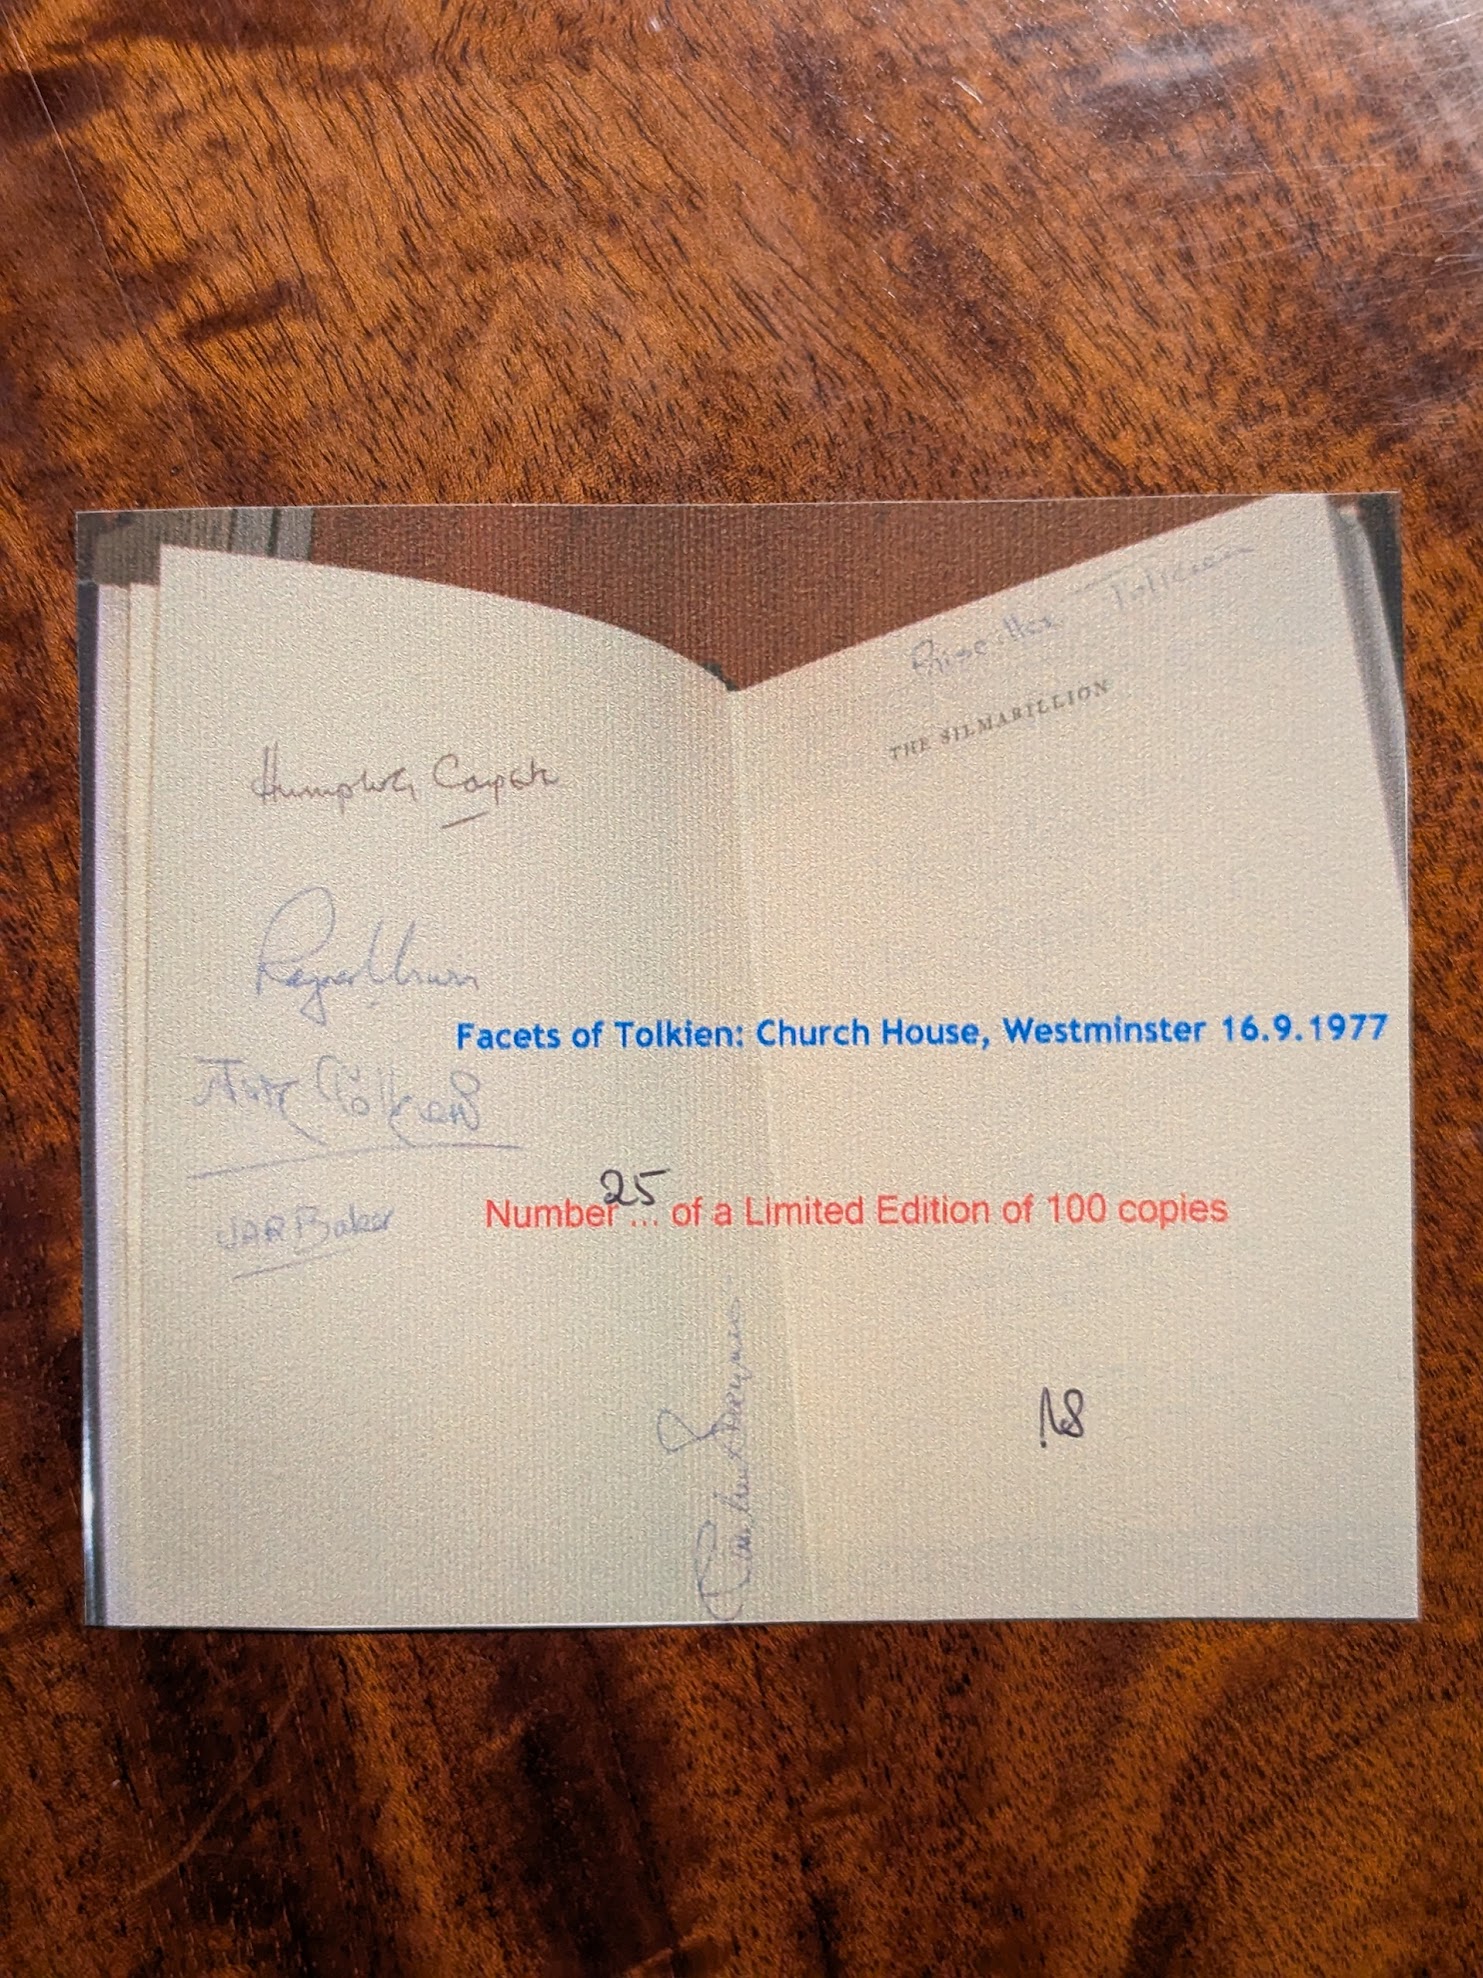 Priscilla Tolkien
THE SILMARILLION
Humphrey Carpenter
Rayner Unwin
Tolkien
JAR Baker
Facets of Tolkien: Church House, Westminster 16.9.1977
Number 25 ... of a Limited Edition of 100 copies